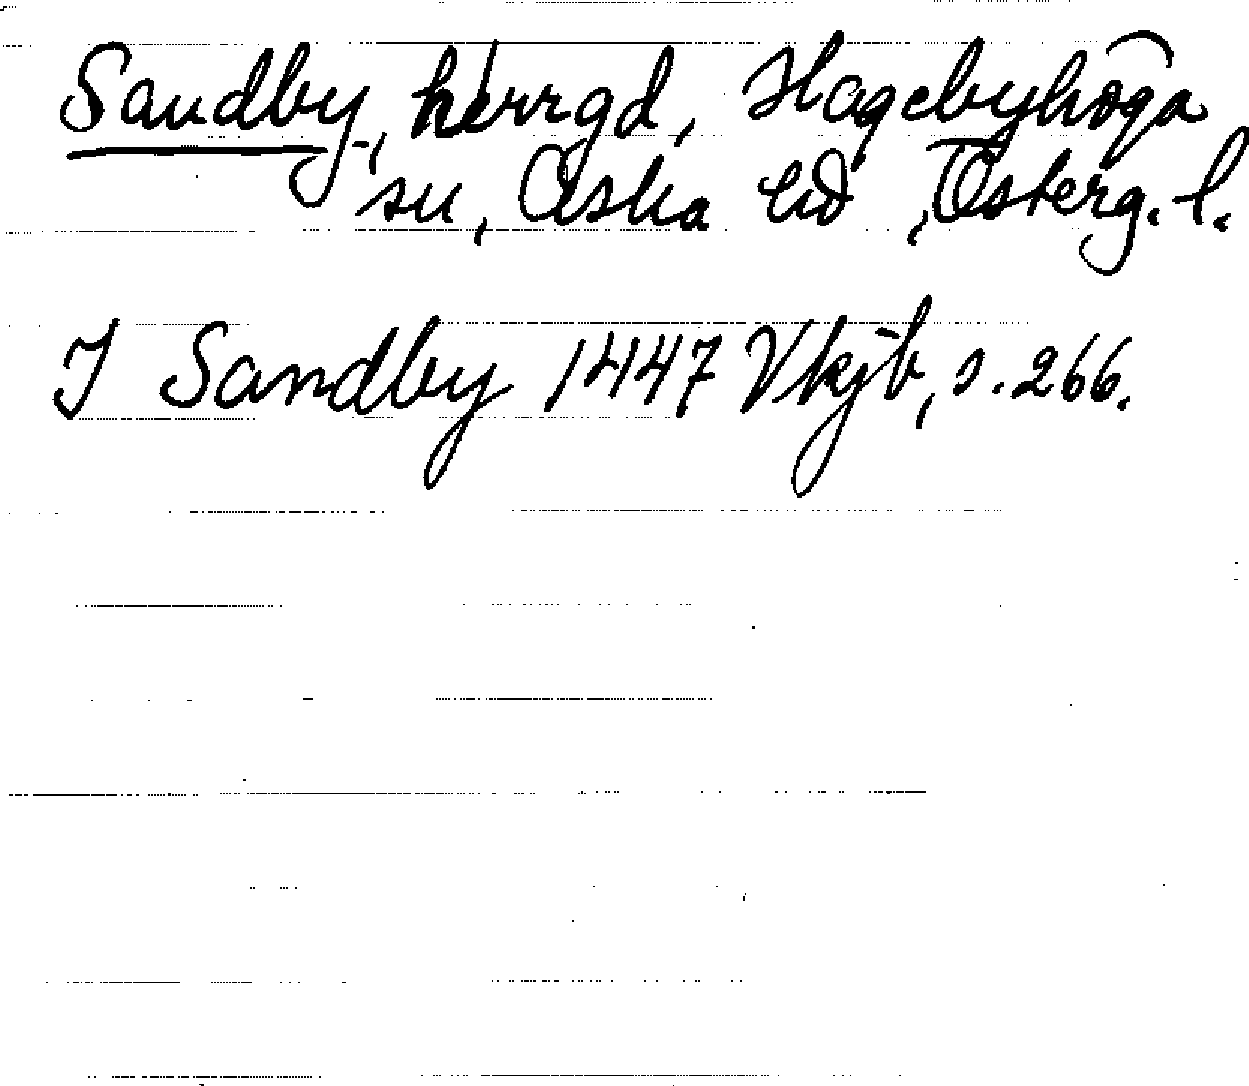 Sandby, herrgd, Hagebyhöga
sn, Aska hd, Österg. l.
I Sandby 1447 Vkjb, s. 266.